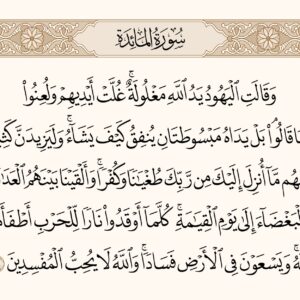 سُورَةُ المَائِدَة
وَقَالَتِ ٱلۡيَهُودُ يَدُ ٱللَّهِ مَغۡلُولَةٌۚ غُلَّتۡ أَيۡدِيهِمۡ وَلُعِنُواْ
قَالُواْۘ بَلۡ يَدَاهُ مَبۡسُوطَتَانِ يُنفِقُ كَيۡفَ يَشَآءُۚ وَلَيَزِيدَنَّ كَثِي
هُم مَّآ أُنزِلَ إِلَيۡكَ مِن رَّبِّكَ طُغۡيَٰنٗا وَكُفۡرٗاۚ وَأَلۡقَيۡنَا بَيۡنَهُمُ ٱلۡعَدَ
لۡبَغۡضَآءَ إِلَىٰ يَوۡمِ ٱلۡقِيَٰمَةِۚ كُلَّمَآ أَوۡقَدُواْ نَارٗا لِّلۡحَرۡبِ أَطۡفَأَ
هُۚ وَيَسۡعَوۡنَ فِي ٱلۡأَرۡضِ فَسَادٗاۚ وَٱللَّهُ لَا يُحِبُّ ٱلۡمُفۡسِدِينَ